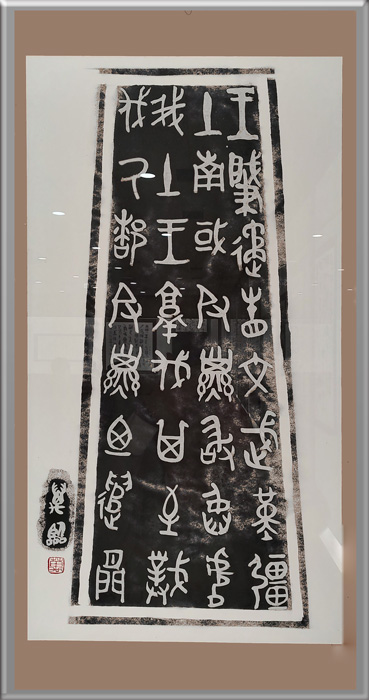 王肇遹省文武堇疆
土南或𠬝孳敢臽虐
我土王𦎫伐其至撲
伐氒都𠬝孳廼遣閒